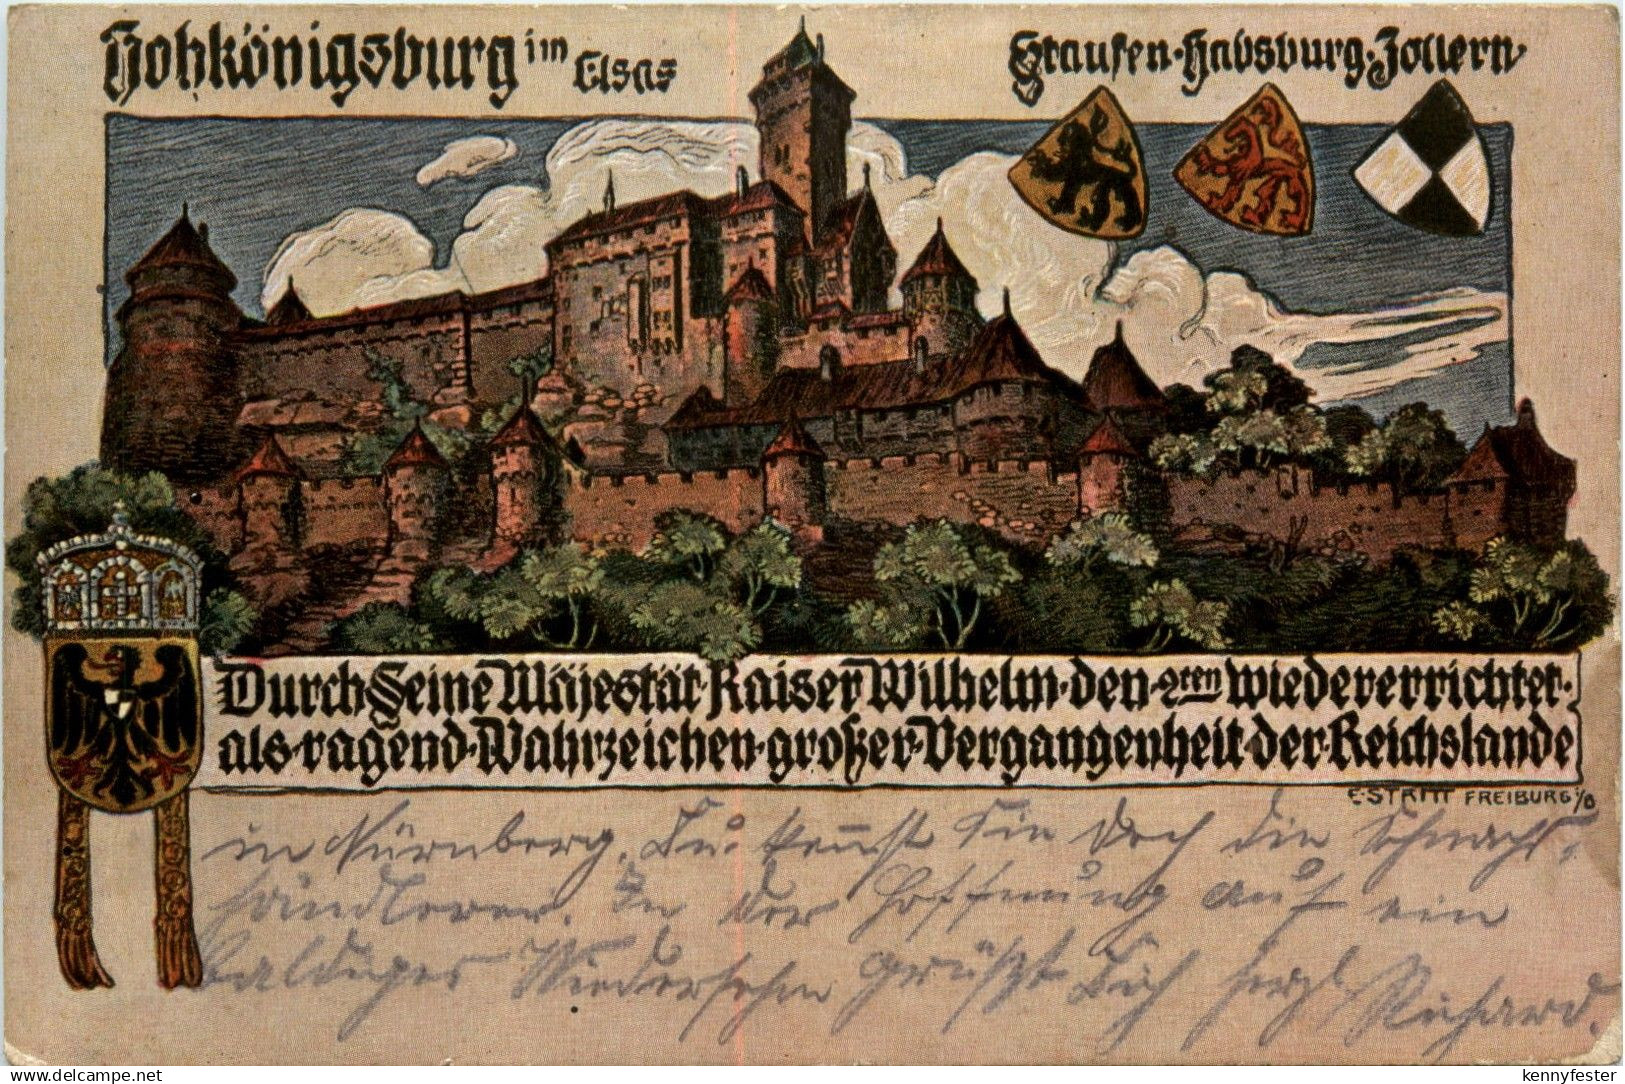 Hohkönigsburg im Elsas
Staufen·Habsburg·Zollern
Durch Seine Majestät Kaiser Wilhelm·den·2ten wiedererrichtet·
als·ragend·Wahrzeichen·großer·Vergangenheit·der·Reichslande
E·STRITT FREIBURG i/B
in Nürnberg. Du kennst Sie doch die
händlerei. In der Hoffnung auf ein
baldiges Wiedersehn grüßt Dich herzl. Richard.
delcampe.net
kennyfester